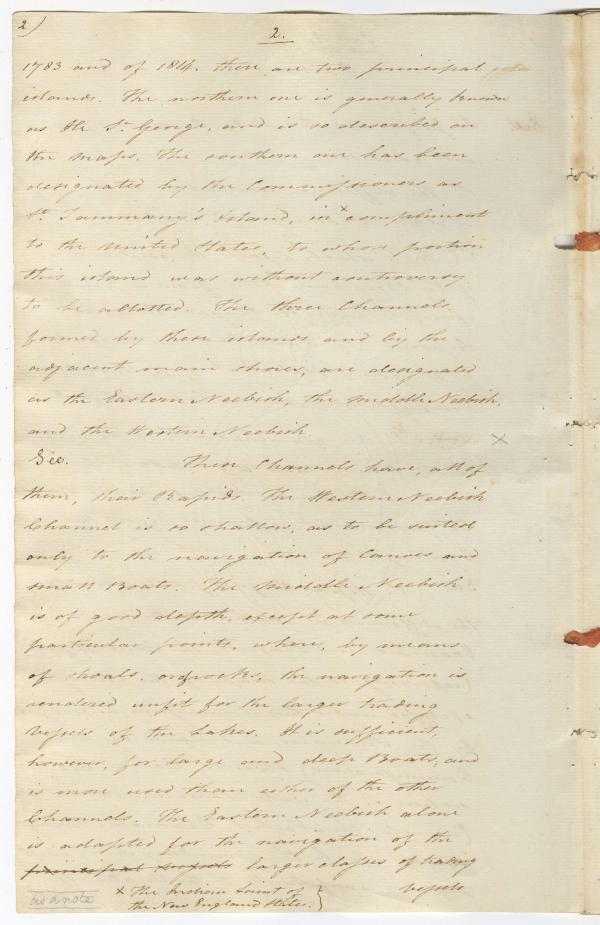 2)
2.
1783 and of 1814. there are two principal
islands. The northern one is generally known
as Ile St. George, and is so described on
the maps. The southern one has been
designated by the Commissioners as
St. Tammany's Island, in × compliment
to the United States, to whose portion
this island was without controversy
to be allotted. The three Channels
formed by these islands and by the
adjacent main shores, are designated
as the Eastern Neebish, the middle Neebish,
and the Western Neebish. ×
These Channels have, all of
them, their Rapids. The Western Neebish
Channel is so shallow, as to be suited
only to the navigation of Canoes and
small Boats. The Middle Neebish
is of good depth, except at some
particular points, where, by means
of shoals, or of rocks, the navigation is
rendered unfit for the larger trading
vessels of the Lakes. It is sufficient,
however, for large and deep Boats, and
is more used than either of the other
Channels. The Eastern Neebish alone
is adapted for the navigation of the
principal vessels larger classes of trading
vessels
× The Indian Saint of
the New England States. }
as a note